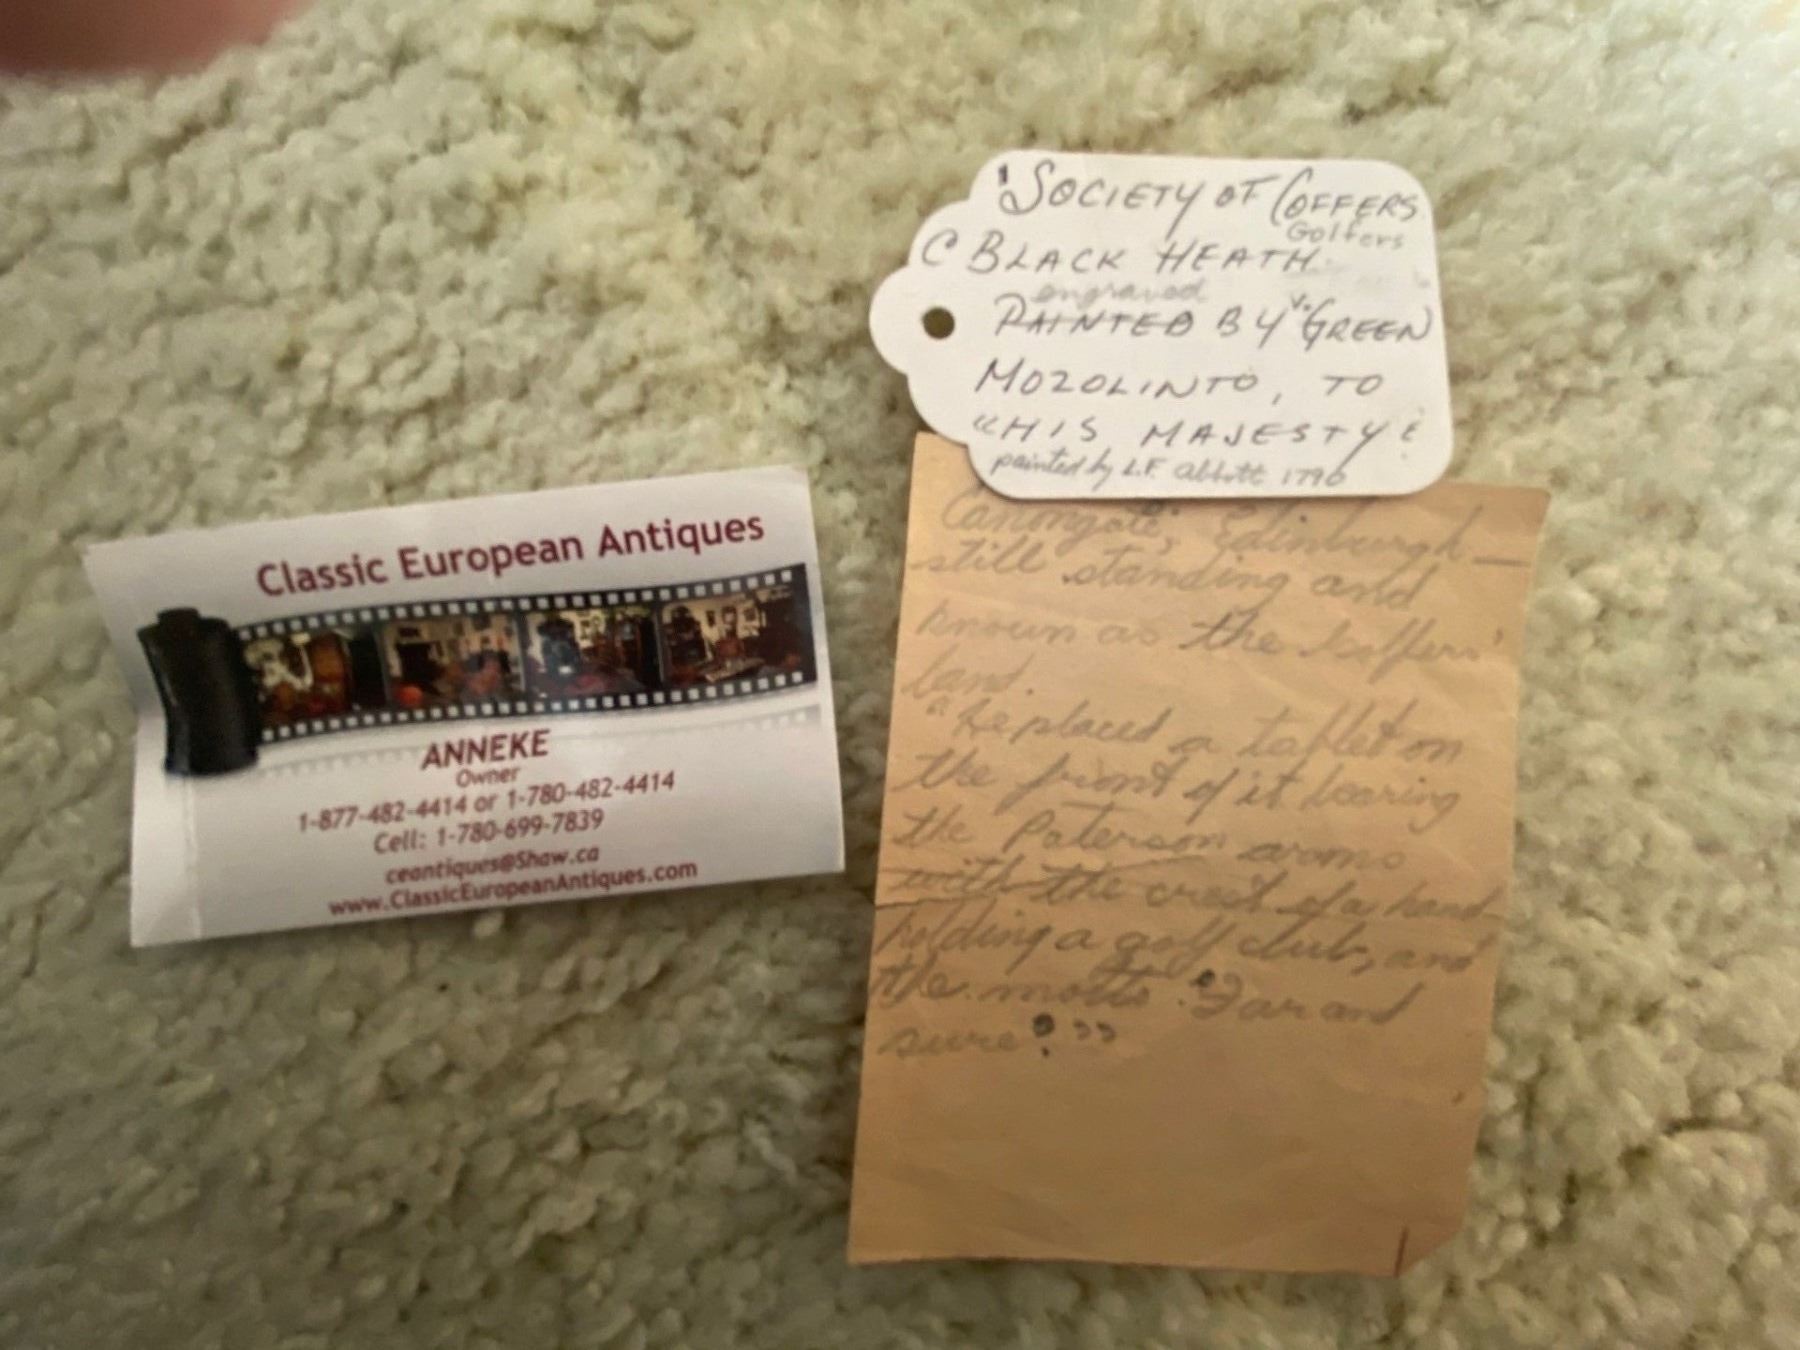 Classic European Antiques
ANNEKE
Owner
1-877-482-4414 or 1-780-482-4414
Cell: 1-780-699-7839
ceantiques@Shaw.ca
www.ClassicEuropeanAntiques.com
'SOCIETY OF GOFFERS
Golfers
C BLACK HEATH
engraved
PAINTED BY V. GREEN
MOZOLINTO, TO
"HIS MAJESTY"
painted by L.F. Abbott 1790
Canongate, Edinburgh —
still standing and
known as the Golfers'
land.
"He placed a tablet on
the front of it bearing
the Paterson arms
with the crest of a hand
holding a golf club, and
the motto 'Far and
sure'."